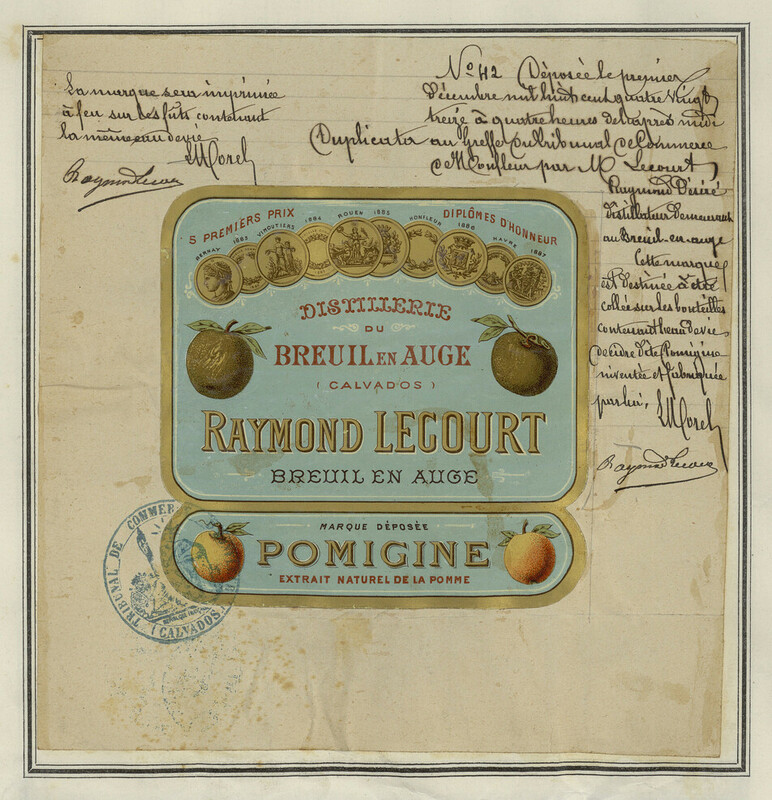 La marque sera imprimée
à feu sur les fûts contenant
la même eau de vie
LMorel
Raymond Lecourt
No 42 Déposée le premier
décembre mil huit cent quatre vingt
treize à quatre heures de l'après midi
Duplicata au Greffe du Tribunal de Commerce
de Honfleur par M Lecourt
Raymond Désiré
distillateur demeurant
au Breuil-en-auge
Cette marque
est destinée à être
collée sur les bouteilles
contenant l'eau de vie
de cidre dite Pomigine
inventée et fabriquée
par lui,
LMorel
Raymond Lecourt
5 PREMIERS PRIX
DIPLÔMES D'HONNEUR
BERNAY 1883 VIMOUTIERS 1884 ROUEN 1885 HONFLEUR 1886 HAVRE 1887
DISTILLERIE
DU
BREUIL EN AUGE
(CALVADOS)
RAYMOND LECOURT
BREUIL EN AUGE
MARQUE DÉPOSÉE
POMIGINE
EXTRAIT NATUREL DE LA POMME
TRIBUNAL DE COMMERCE
(CALVADOS)